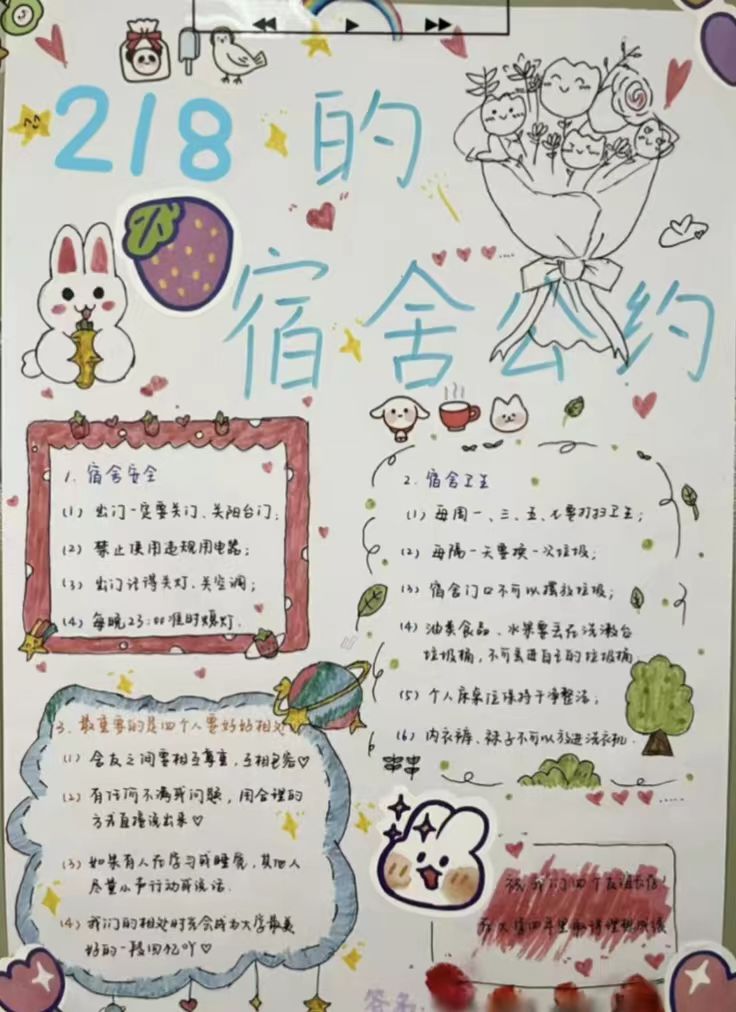 218的
宿舍公约
1. 宿舍安全
(1) 出门一定要关门、关阳台门;
(2) 禁止使用违规用电器;
(3) 出门记得关灯、关空调;
(4) 每晚23:00准时熄灯.
2. 宿舍卫生
(1) 每周一、三、五、七要打扫卫生;
(2) 每隔一天要换一次垃圾;
(3) 宿舍门口不可以摆放垃圾;
(4) 油类食品、水果要丢在洗漱台
垃圾桶,不可丢进自己的垃圾桶
(5) 个人床桌位保持干净整洁;
(6) 内衣裤、袜子不可以放进洗衣机.
3. 最重要的是四个人要好好相处
(1) 舍友之间要相互尊重,互相包容♡
(2) 有任何不满或问题,用合理的
方式直接说出来♡
(3) 如果有人在学习或睡觉,其他人
尽量小声行动或说话.
(4) 我们的相处时光会成为大学最美
好的一段回忆吖♡
祝我们四个友谊长存!
在大学四年里取得理想成绩
签名: